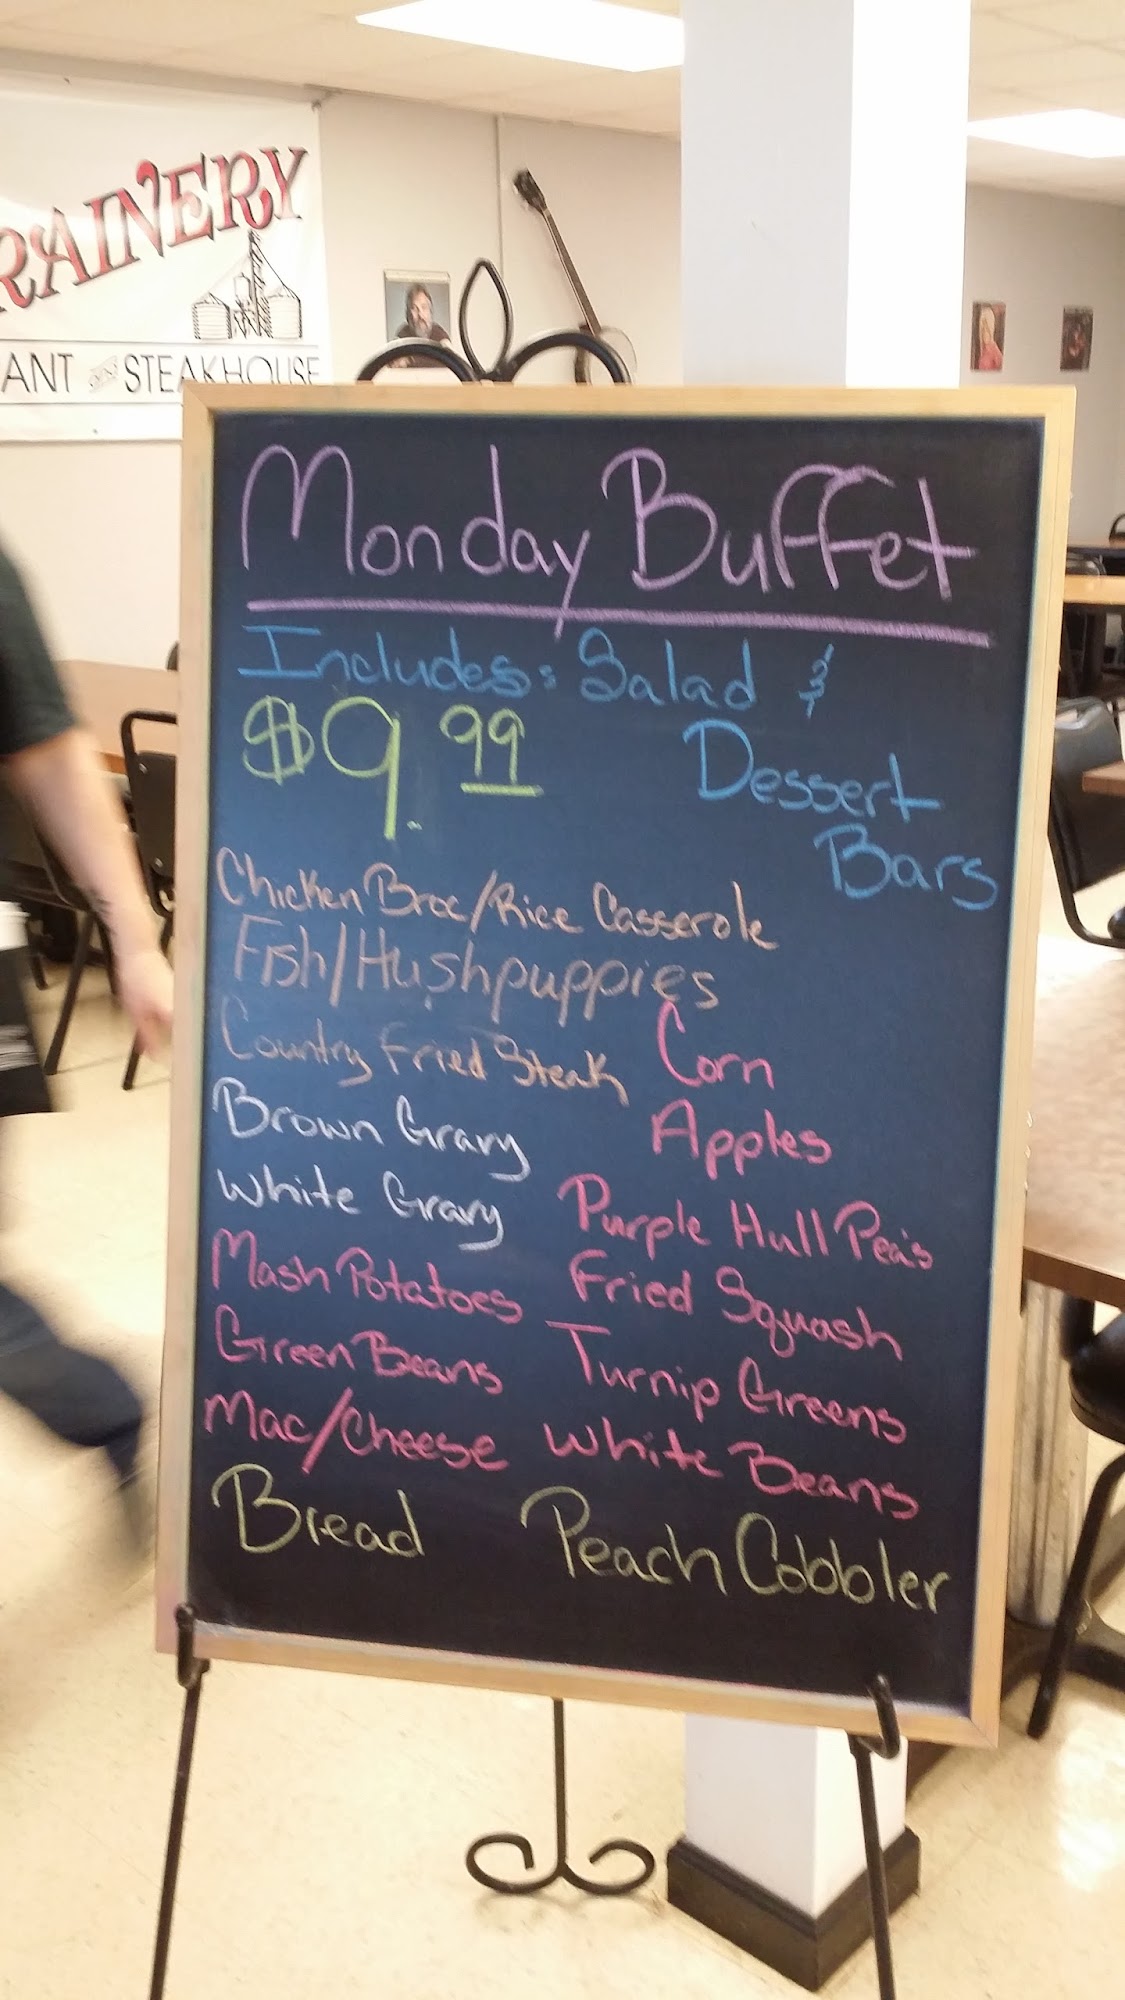 RAINERY
ANT AND STEAKHOUSE
Monday Buffet
Includes: Salad &
$9.99 Dessert
Bars
Chicken Broc/Rice Casserole
Fish/Hushpuppies
Country Fried Steak
Brown Gravy
White Gravy
Mash Potatoes
Green Beans
Mac/Cheese
Corn
Apples
Purple Hull Pea's
Fried Squash
Turnip Greens
White Beans
Bread Peach Cobbler